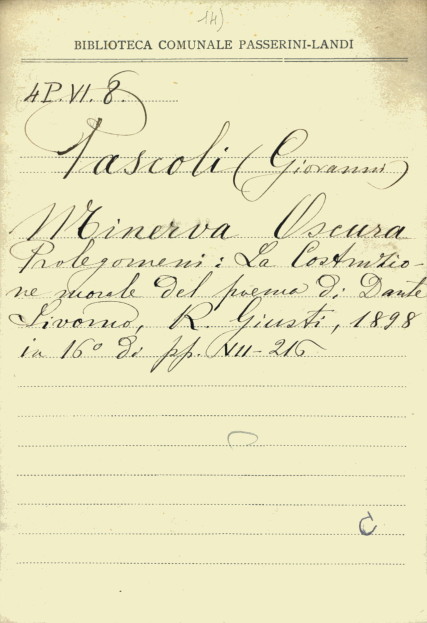 14)
BIBLIOTECA COMUNALE PASSERINI-LANDI
4P.VI.8.
Pascoli (Giovanni)
Minerva Oscura
Prolegomeni: La Costruzio-
ne morale del poema di Dante
Livorno, R. Giusti, 1898
in 16° di pp. VII-216
C